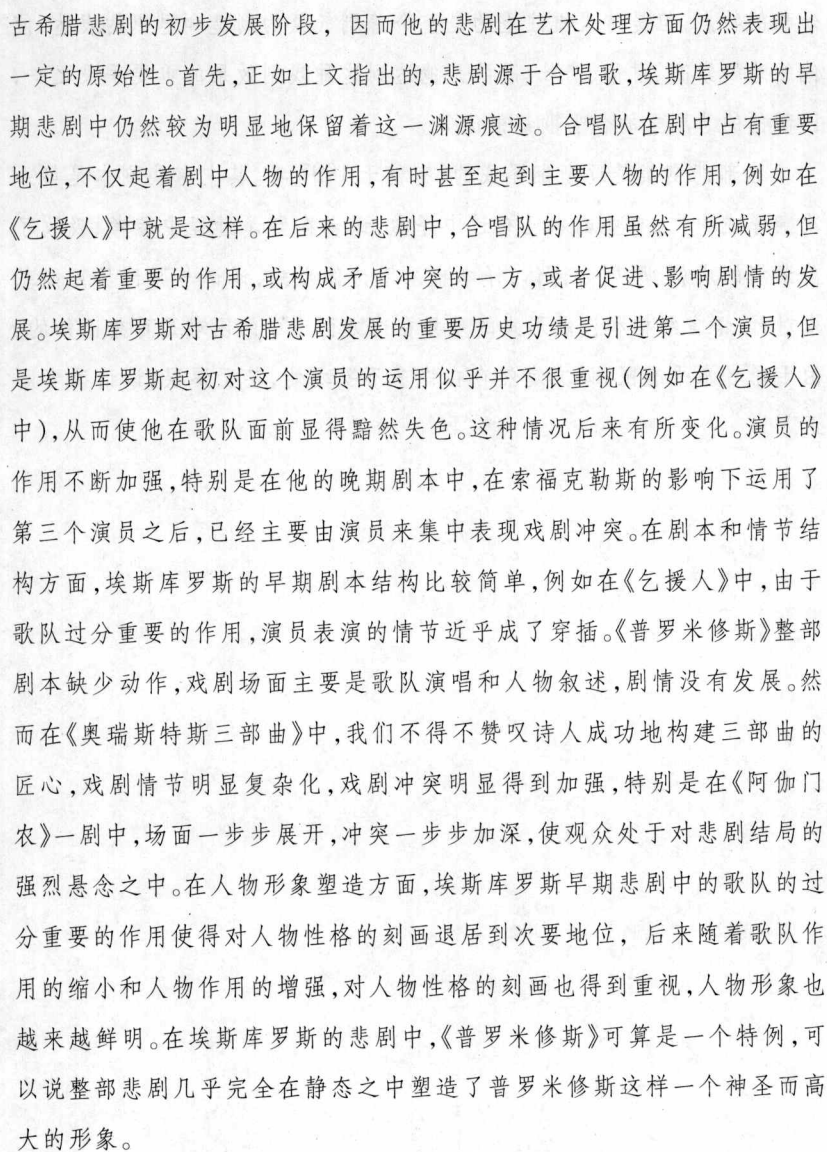 古希腊悲剧的初步发展阶段，因而他的悲剧在艺术处理方面仍然表现出
一定的原始性。首先，正如上文指出的，悲剧源于合唱歌，埃斯库罗斯的早
期悲剧中仍然较为明显地保留着这一渊源痕迹。合唱队在剧中占有重要
地位，不仅起着剧中人物的作用，有时甚至起到主要人物的作用，例如在
《乞援人》中就是这样。在后来的悲剧中，合唱队的作用虽然有所减弱，但
仍然起着重要的作用，或构成矛盾冲突的一方，或者促进、影响剧情的发
展。埃斯库罗斯对古希腊悲剧发展的重要历史功绩是引进第二个演员，但
是埃斯库罗斯起初对这个演员的运用似乎并不很重视（例如在《乞援人》
中），从而使他在歌队面前显得黯然失色。这种情况后来有所变化。演员的
作用不断加强，特别是在他的晚期剧本中，在索福克勒斯的影响下运用了
第三个演员之后，已经主要由演员来集中表现戏剧冲突。在剧本和情节结
构方面，埃斯库罗斯的早期剧本结构比较简单，例如在《乞援人》中，由于
歌队过分重要的作用，演员表演的情节近乎成了穿插。《普罗米修斯》整部
剧本缺少动作，戏剧场面主要是歌队演唱和人物叙述，剧情没有发展。然
而在《奥瑞斯特斯三部曲》中，我们不得不赞叹诗人成功地构建三部曲的
匠心，戏剧情节明显复杂化，戏剧冲突明显得到加强，特别是在《阿伽门
农》一剧中，场面一步步展开，冲突一步步加深，使观众处于对悲剧结局的
强烈悬念之中。在人物形象塑造方面，埃斯库罗斯早期悲剧中的歌队的过
分重要的作用使得对人物性格的刻画退居到次要地位，后来随着歌队作
用的缩小和人物作用的增强，对人物性格的刻画也得到重视，人物形象也
越来越鲜明。在埃斯库罗斯的悲剧中，《普罗米修斯》可算是一个特例，可
以说整部悲剧几乎完全在静态之中塑造了普罗米修斯这样一个神圣而高
大的形象。